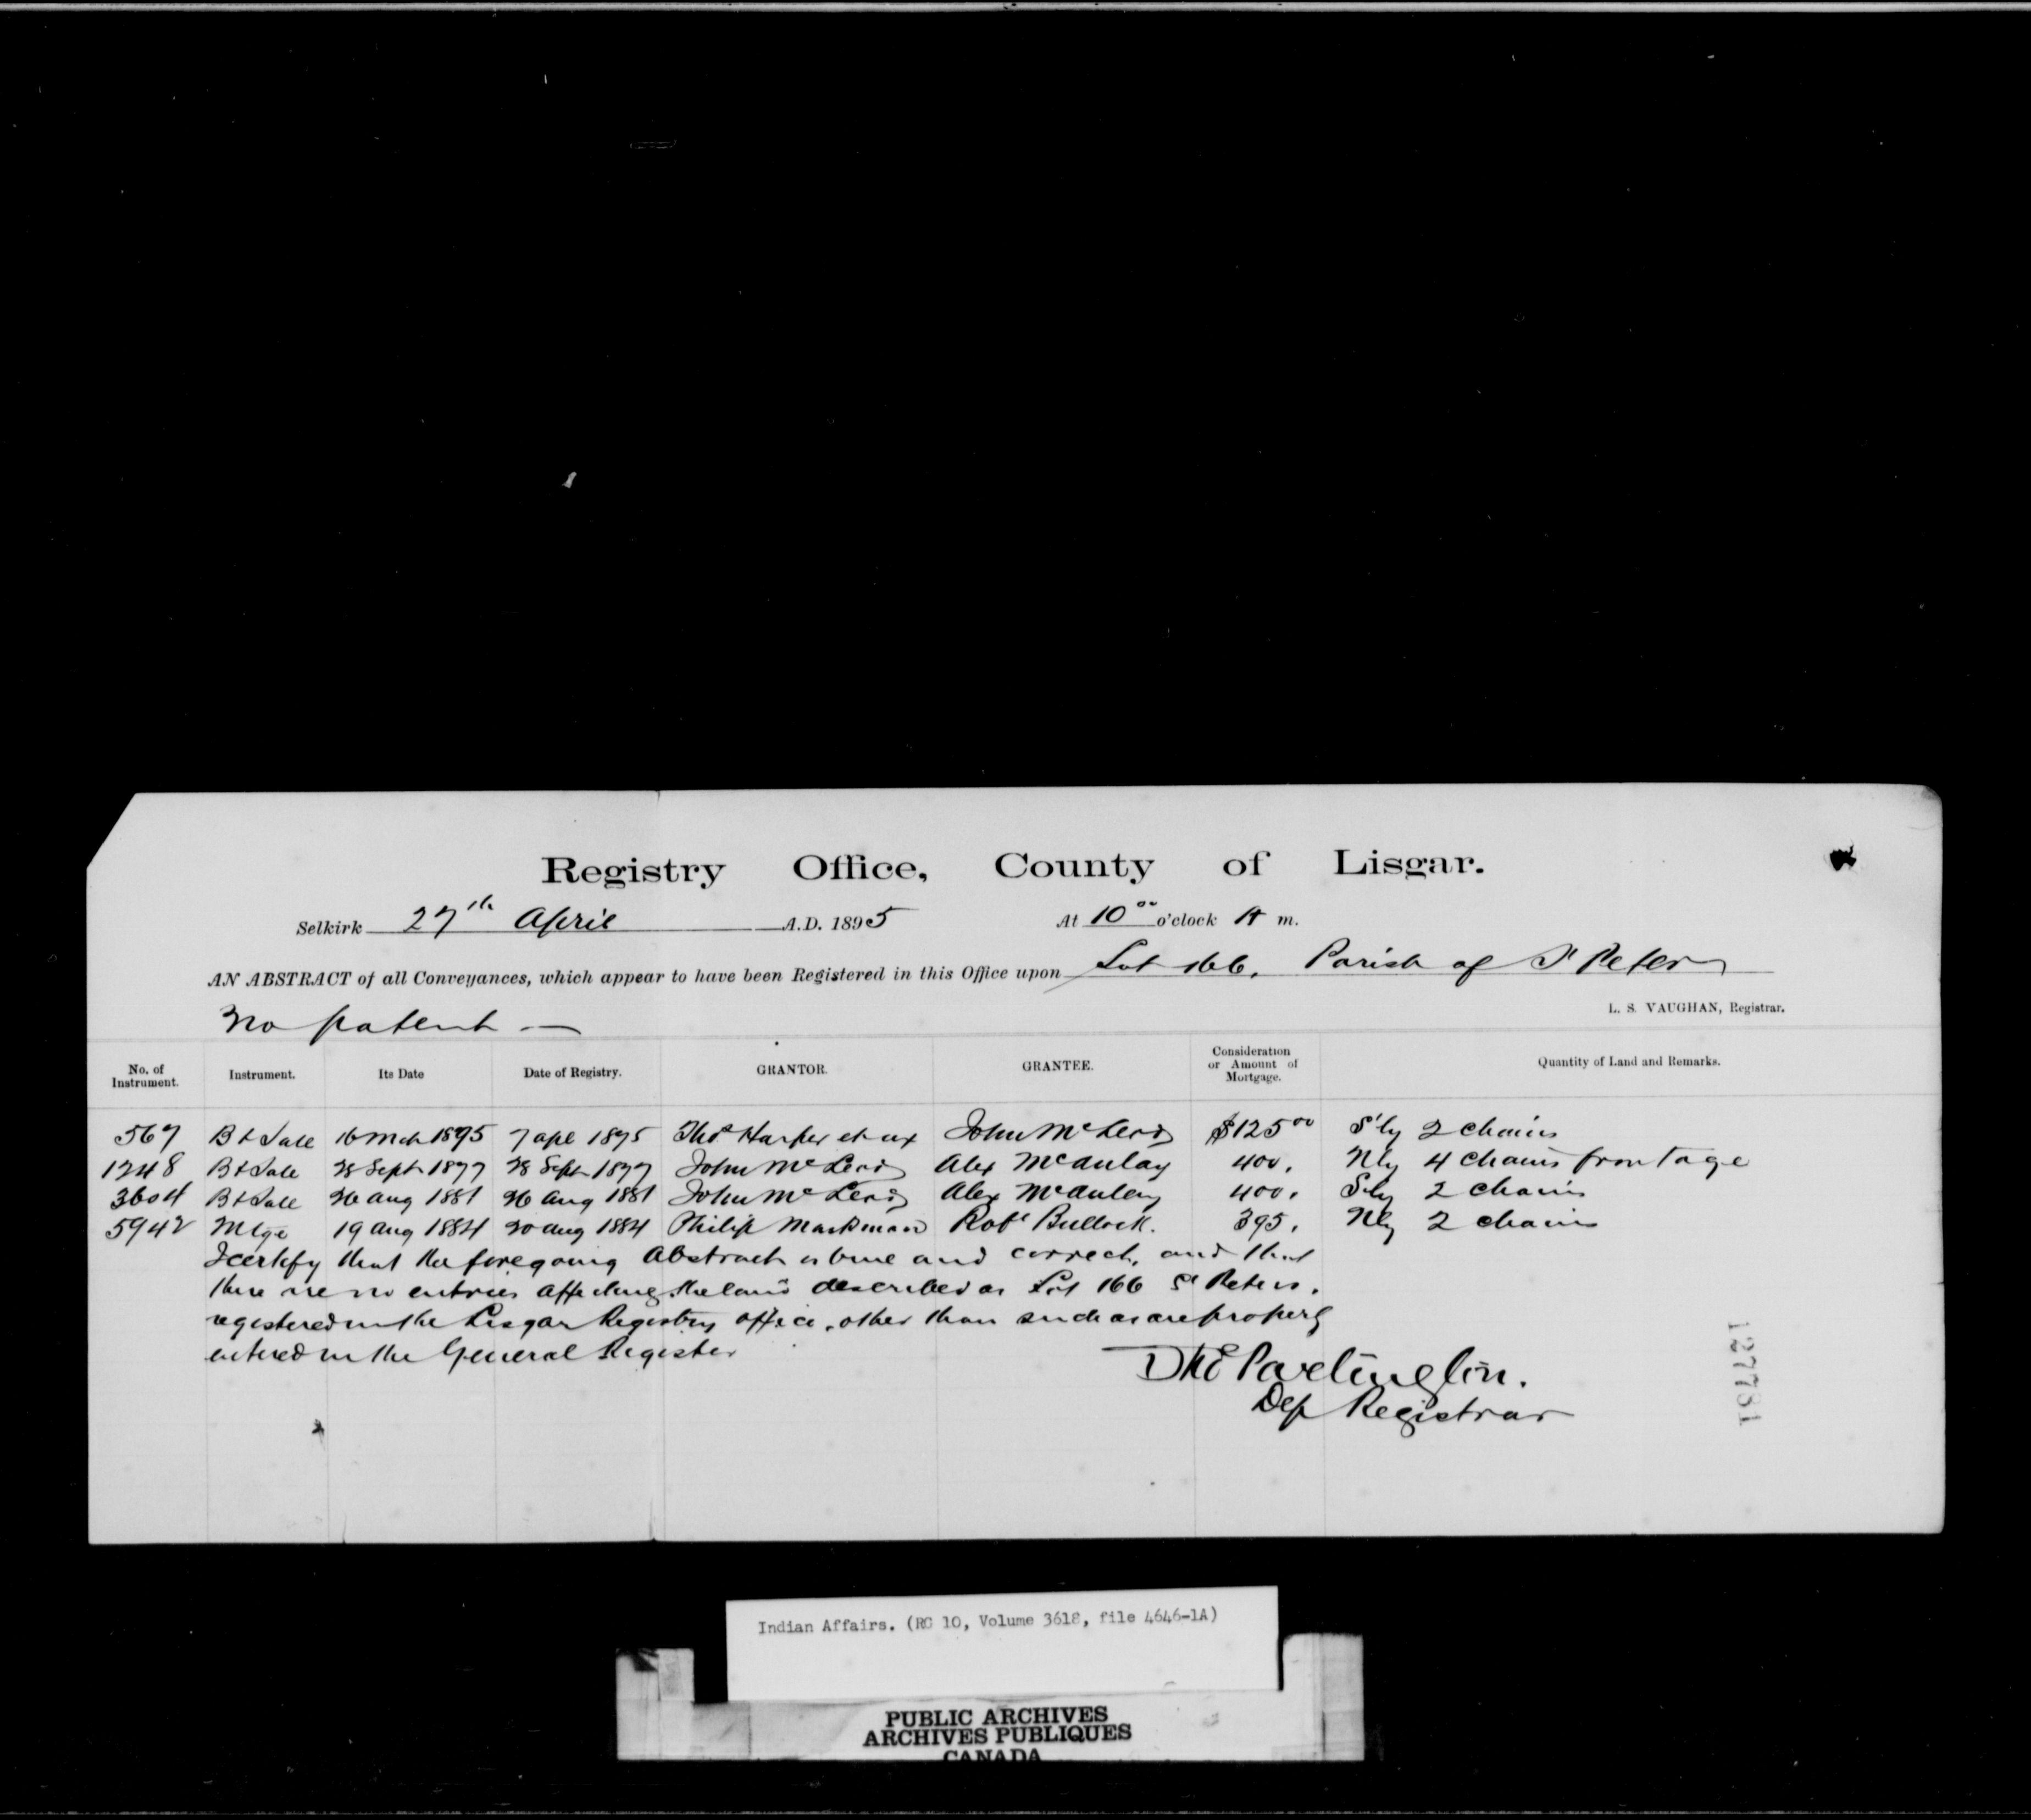 Registry Office, County of Lisgar.
Selkirk 27th April A.D. 1895 At 10 00 o'clock A m.
AN ABSTRACT of all Conveyances, which appear to have been Registered in this Office upon Lot 166, Parish of St Peter
L. S. VAUGHAN, Registrar.
No patent —
No. of Instrument. Instrument. Its Date Date of Registry. GRANTOR. GRANTEE. Consideration or Amount of Mortgage. Quantity of Land and Remarks.
567 B & Sale 16 Mch 1875 7 Apl 1875 Thos Harper et ux John McLeod $125 00 S'ly 2 chains
1248 B & Sale 28 Sept 1877 28 Sept 1877 John McLeod Alex McAulay 400. Nly 4 chains frontage
3604 B & Sale 26 Aug 1881 26 Aug 1881 John McLeod Alex McAulay 400. Sly 2 chains
5942 Mtge 19 Aug 1884 20 Aug 1884 Philip Markman Robt Bullock. 395. Nly 2 chains
I certify that the foregoing Abstract is true and correct, and that
there are no entries affecting the land described as Lot 166 St Peters.
registered in the Lisgar Registry office, other than such as are properly
entered in the General Register
Partington.
Dep Registrar
127731
Indian Affairs. (RG 10, Volume 3618, file 4646-1A)
PUBLIC ARCHIVES
ARCHIVES PUBLIQUES
CANADA